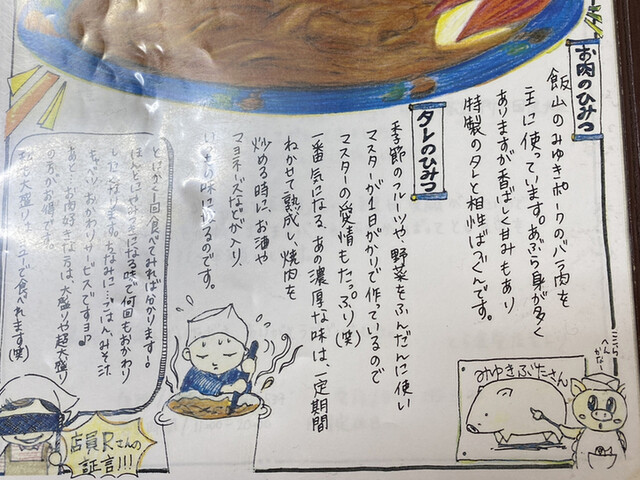 お肉のひみつ
飯山のみゆきポークのバラ肉を
主に使っています。あぶら身が多く
ありますが香ばしく甘みもあり
特製のタレと相性ばつぐんです。
タレのひみつ
季節のフルーツや、野菜をふんだんに使い
マスターが1日がかりで作っているので
マスターの愛情もたっぷり(笑)
一番気になる、あの濃厚な味は、一定期間
ねかせて熟成し、焼肉を
炒める時に、お酒や
マヨネーズなどが入り、
味になるのです。
とにかく1回食べてみれば分かります。
やみつきになる味で何回もおかわり
したくなります。ちなみに…ごはん、みそ汁、
キャベツ、おかわりサービスですヨ♪
あと、お肉好きならば、大盛りや超大盛り
の方がお得です。
私も大盛り 食べれます(笑)
店員Rさんの
証言!!!
みゆきぶたさん
ここら
へん
かなー